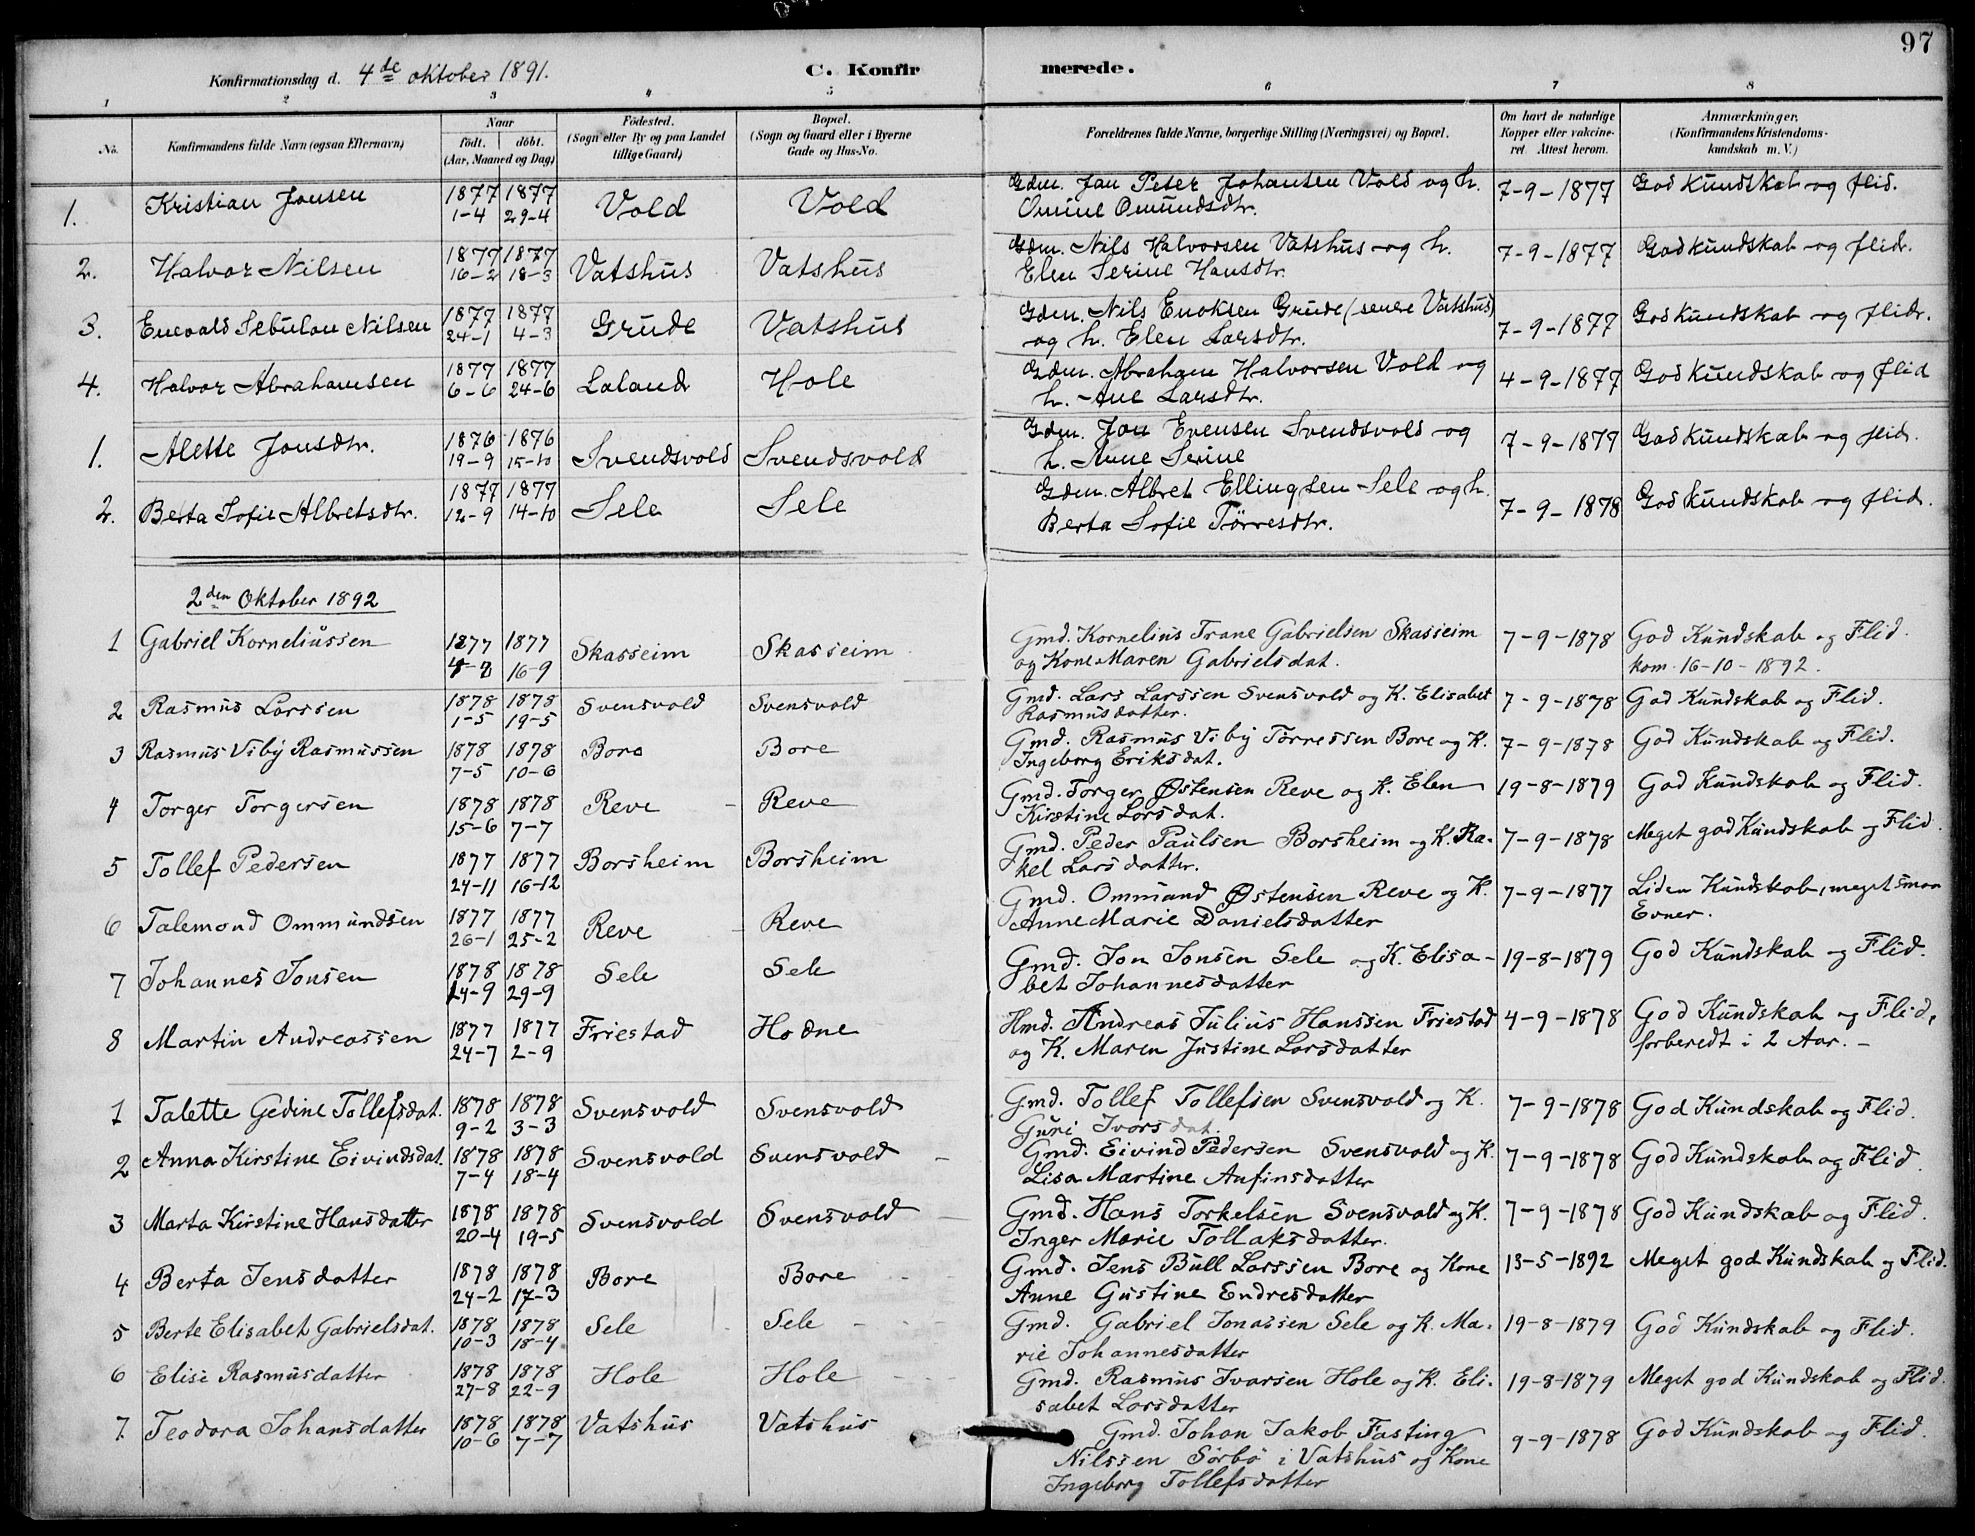 97
Konfirmationsdag d. 4de oktober 1891. C. Konfirmerede.
1 2 3 4 5 6 7 8
No. Konfirmandens fulde Navn (ogsaa Efternavn) Naar født. døbt. (Aar, Maaned og Dag) Fødested. (Sogn eller By og paa Landet tillige Gaard) Bopæl. (Sogn og Gaard eller i Byerne Gade og Hus-No. Forældrenes fulde Navne, borgerlige Stilling (Næringsvei) og Bopæl. Om havt de naturlige Kopper eller vakcineret. Attest herom. Anmærkninger. (Konfirmandens Kristendomskundskab m. V.)
1. Kristian Jonsen 1877 1-4 1877 29-4 Vold Vold Gdm. Jan Peter Johansen Vold og h. Omine Omundsdtr. 7-9-1877 God Kundskab og flid.
2. Halvor Nilsen 1877 16-2 1877 18-3 Vatshus Vatshus Gdm. Nils Halvorsen Vatshus og h. Elen Serine Hansdtr. 7-9-1877 God kundskab og flid.
3. Enevald Sebulon Nilsen 1877 24-1 1877 4-3 Grude Vatshus Gdm. Nils Enoksen Grude (senere Vatshus) og h. Elen Larsdtr. 7-9-1877 God kundskab og flid.
4. Halvor Abrahamsen 1877 6-6 1877 24-6 Laland Hole Gdm. Abraham Halvorsen Vold og h. Ane Larsdtr. 4-9-1877 God kundskab og flid
1. Alette Jonsdtr. 1876 19-9 1876 15-10 Svendsvold Svendsvold Gdm. Jon Evensen Svendsvold og h. Anne Serine 7-9-1879 God Kundskab og flid.
2. Berta Sofie Albretsdtr. 1877 12-9 1877 14-10 Sele Sele Gdm. Albret Ellingsen Sele og h. Berta Sofie Tørresdtr. 7-9-1878 God kundskab og flid.
2den Oktober 1892
1 Gabriel Korneliussen 1877 1877 16-9 Skasseim Skasseim Gmd. Kornelius Trane Gabrielsen Skasseim og Kone Maren Gabrielsdat. 7-9-1878 God Kundskab og Flid. kom. 16-10-1892.
2 Rasmus Larssen 1878 1-5 1878 19-5 Svensvold Svensvold Gmd. Lars Larssen Svensvold og K. Elisabet Rasmusdatter. 7-9-1878 God Kundskab og Flid.
3 Rasmus Viby Rasmussen 1878 7-5 1878 10-6 Bore Bore Gmd. Rasmus Viby Tørressen Bore og K. Ingeborg Eriksdat. 7-9-1878 God Kundskab og Flid.
4 Torger Torgersen 1878 15-6 1878 7-7 Reve Reve Gmd. Torger Østensen Reve og K. Elen Kirstine Larsdat. 19-8-1879 God Kundskab og Flid.
5 Tollef Pedersen 1877 24-11 1877 16-12 Borsheim Borsheim Gmd. Peder Paulsen Borsheim og K. Rakel Larsdatter. 7-9-1878 Meget god Kundskab og Flid.
6 Talemond Ommundsen 1877 26-1 1877 25-2 Reve Reve Gmd. Ommund Østensen Reve og K. Anne Marie Danielsdatter 7-9-1877 Liden Kundskab, meget smaa Evner.
7 Johannes Jonsen 1878 1878 29-9 Sele Sele Gmd. Jon Jonsen Sele og K. Elisabet Johannesdatter 19-8-1879 God Kundskab og Flid.
8 Martin Andreassen 1877 24-7 1877 2-9 Friestad Hodne Hmd. Andreas Julius Hanssen Friestad og K. Maren Justine Larsdatter 4-9-1878 God Kundskab og Flid, forberedt i 2 Aar. -
1 Talette Gedine Tollefsdat. 1878 9-2 1878 3-3 Svensvold Svensvold Gmd. Tollef Tollefsen Svensvold og K. Guri Ivarsdat. 7-9-1878 God Kundskab og Flid.
2 Anna Kirstine Eivindsdat. 1878 7-4 1878 18-4 Svensvold Svensvold Gmd. Eivind Pedersen Svensvold og K. Lisa Martine Anfinsdatter 7-9-1878 God Kundskab og Flid.
3 Marta Kirstine Hansdatter 1878 20-4 1878 19-5 Svensvold Svensvold Gmd. Hans Torkelsen Svensvold og K. Inger Marie Tollaksdatter. 7-9-1878 God Kundskab og Flid.
4 Berta Jensdatter 1878 24-2 1878 17-3 Bore Bore Gmd. Jens Bull Larssen Bore og Kone Anne Gustine Endresdatter 13-5-1892 Meget god Kundskab og Flid.
5 Berte Elisabet Gabrielsdat. 1878 10-3 1878 18-4 Sele Sele Gmd. Gabriel Jonassen Sele og K. Marie Johannesdatter 19-8-1879 God Kundskab og Flid.
6 Elise Rasmusdatter 1878 27-8 1878 22-9 Hole Hole Gmd. Rasmus Ivarsen Hole og K. Elisabet Larsdatter 19-8-1879 Meget god Kundskab og Flid.
7. Teodora Johansdatter 1878 10-6 1878 7-7 Vatshus Vatshus Gmd. Johan Jakob Fasting Nilssen Sørbø i Vatshus og Kone Ingeborg Tollefsdatter 9-9-1878 God Kundskab og Flid.